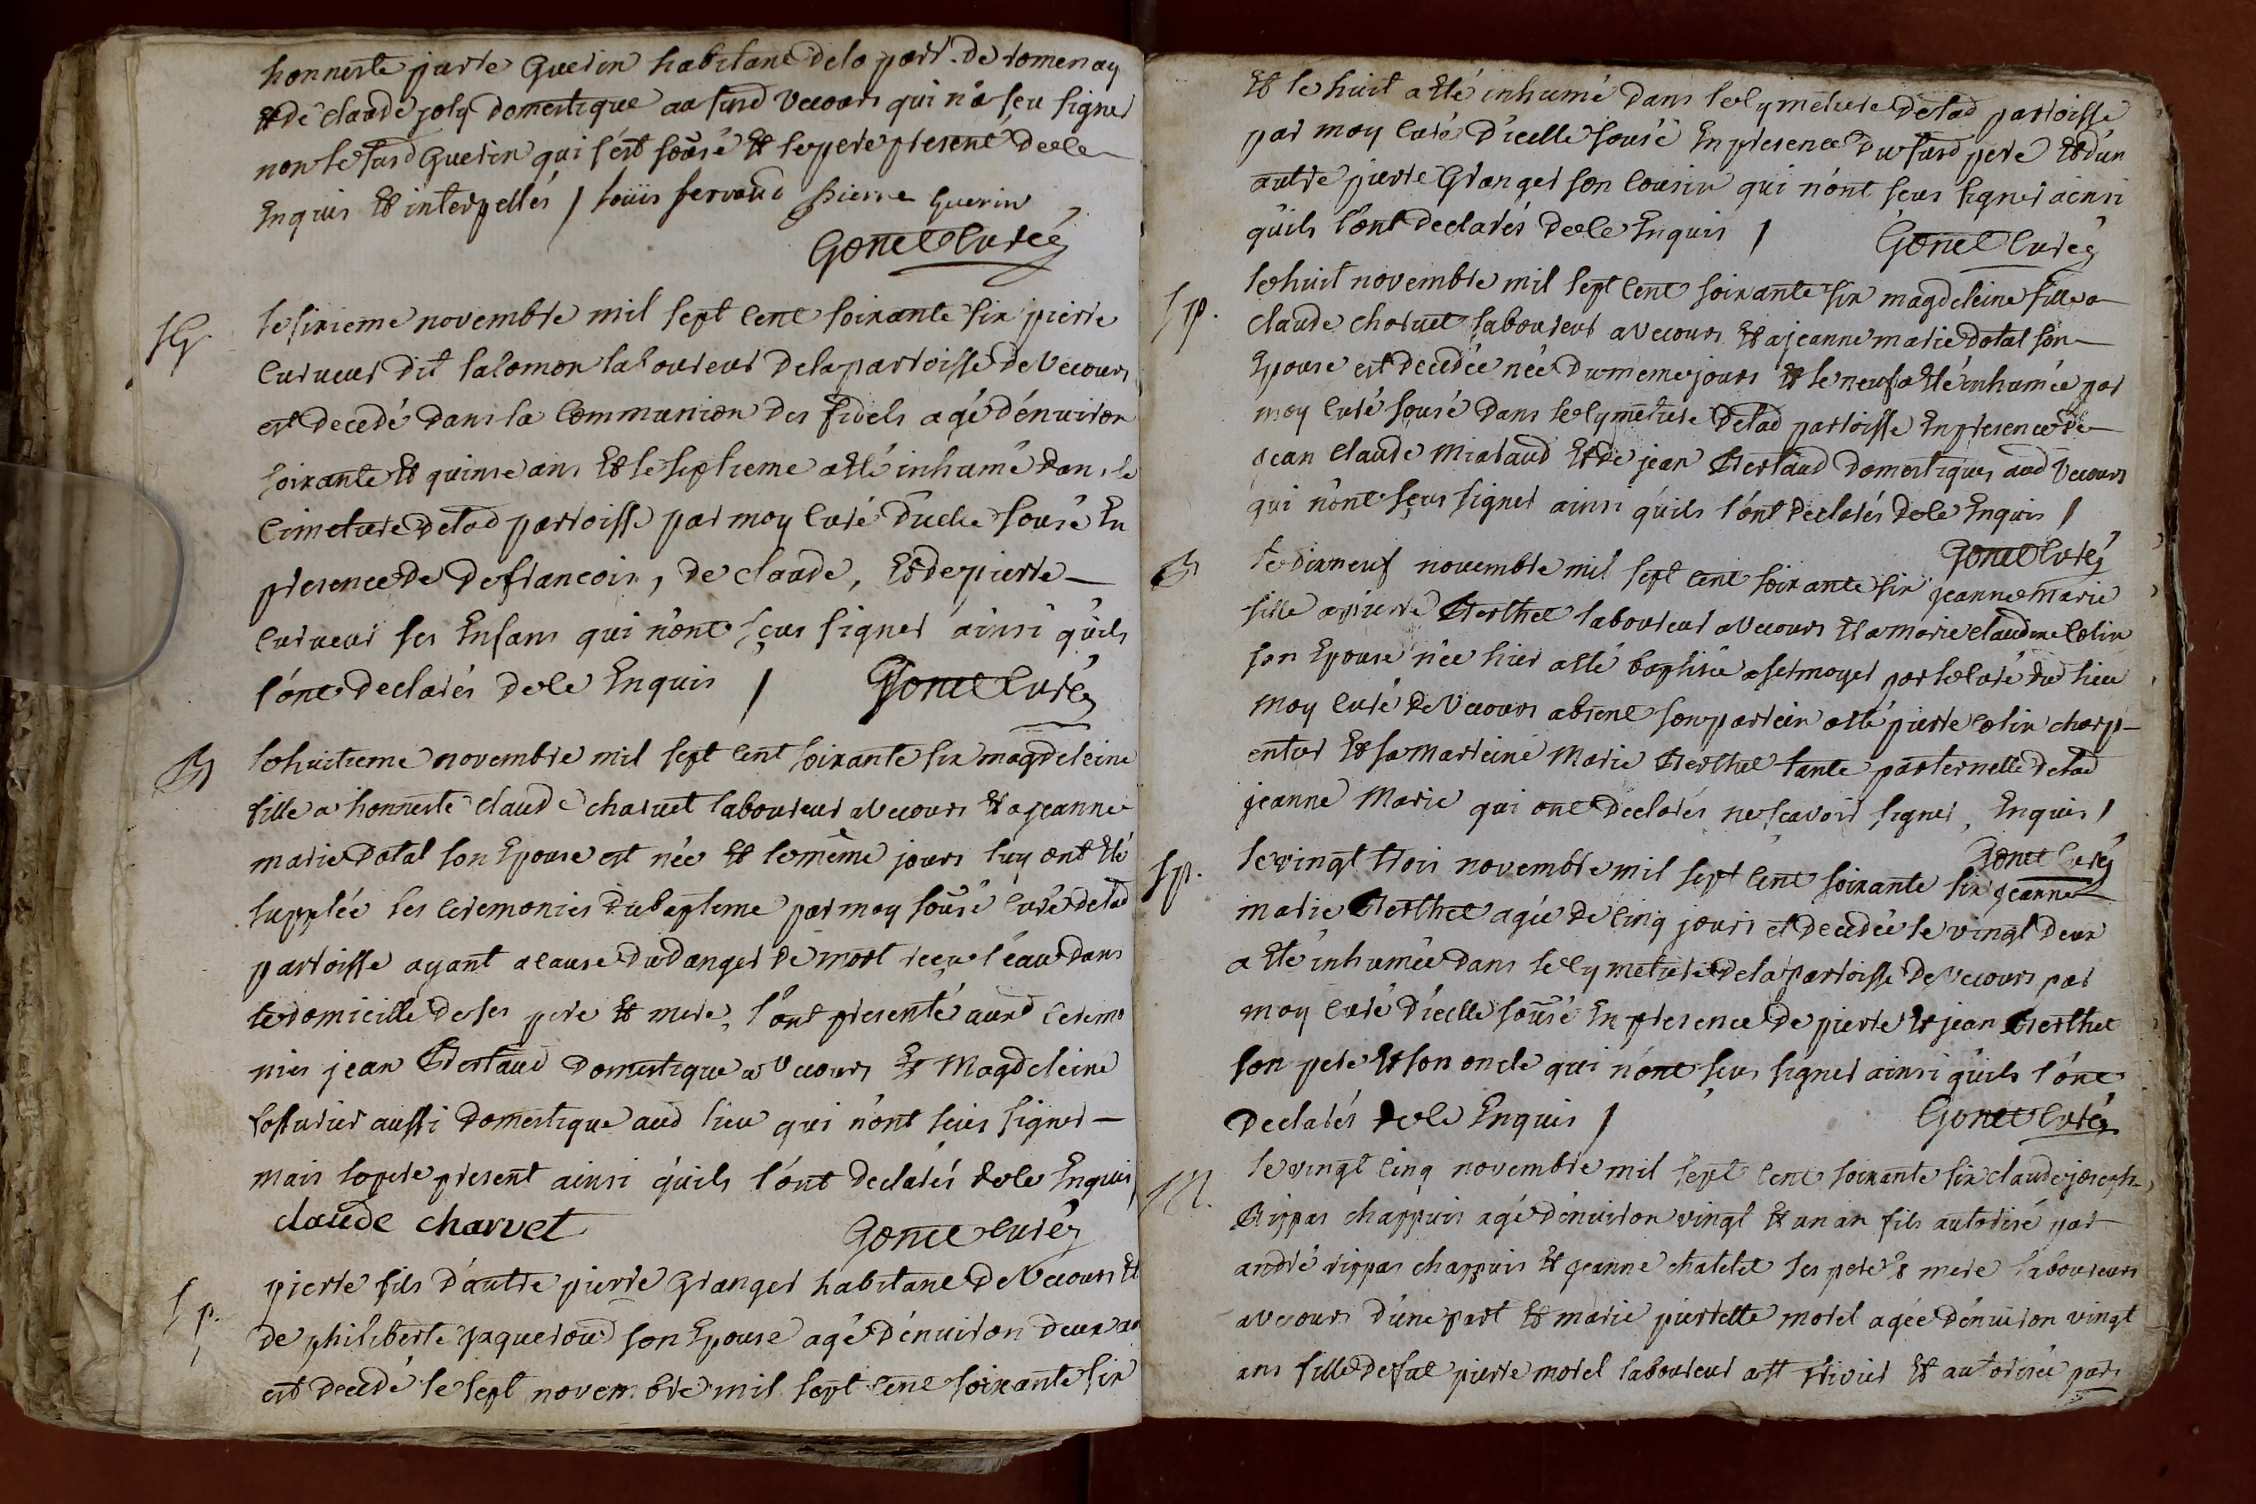 honneste pierre Guerin habitant de la parr. de romenay
Et de claude joly domestique au susd Vecours qui n'a sçu signer
non le susd Guerin qui s'est sousé Et le pere present de ce
Enquis Et interpellés / louis ferraud pierre Guerin
Gonet Curé
SG. le sixieme novembre mil sept cent soixante six pierre
Curveur dit salomon laboureur de la parroisse de Vecours
est decedé dans la Communion des fidels agé d'énviron
soixante Et quinse ans Et le septieme a Eté inhumé dans le
Cimetiere de lad parroisse par moy Curé d'icelle sousé En
presence de de francois, de claude, Et de pierre
Curveur ses Enfans qui n'ont sçus signer ainsi qu'ils
l'ont declarés de ce Enquis / Gonet Curé
B le huitieme novembre mil sept cent soixante six magdeleine
fille a honneste claude charvet laboureur a Vecours Et a jeanne
marie Dotal son Epouse est née Et le même jours luy ont Eté
supplée les ceremonies du bapteme par moy sousé Curé de lad
parroisse ayant a cause du danger de mort reçu l'éau dans
le domicille de ses pere Et mere, l'ont presenté auxd ceremo
nies jean Bertaud domestique a Vecours Et Magdeleine
aussi domestique aud lieu qui n'ont sçus signer
mais le pere present ainsi qu'ils l'ont declarés de ce Enquis /
claude charvet Gonet Curé
Sp. pierre fils d'autre pierre Granger habitant de Vecours Et
de philiberte paqueroud son Epouse agé d'énviron deux an
est decedé le sept novembre mil sept cent soixante six
Et le huit a Eté inhumé dans le Cymetiere de lad parroisse
par moy Curé d'icelle sousé En presence du susd pere Et d'un
autre pierre Granger son Cousin qui n'ont sçus signer ainsi
qu'ils l'ont declarés de ce Enquis / Gonet Curé
Sp. le huit novembre mil sept cent soixante six magdeleine fille a
claude charvet laboureur a Vecours Et a jeanne marie dotal son
Epouse est decedée née du meme jours Et le neuf a Eté inhumée par
moy Curé sousé dans le Cymetiere de lad parroisse En presence de
jean claude Miataud Et de jean Bertaud domestiques aud Vecours
qui n'ont sçus signer ainsi qu'ils l'ont declarés de ce Enquis /
Gonet Curé
B le dixneuf novembre mil sept cent soixante six jeanne marie
fille a pierre Berthet laboureur a Vecours Et a marie claudine Colin
son Epouse née hier a Eté baptisée a sermoyer par le Curé du lieu
moy Curé de Vecours absent son parrein a Eté pierre Colin charp-
entier Et sa marreine Marie Berthet tante paternelle de lad
jeanne Marie qui ont declarés ne sçavoir signer, Enquis /
Gonet Curé
Sp. le vingt trois novembre mil sept cent soixante six jeanne
marie Berthet agée de cinq jours et decedée le vingt deux
a Eté inhumée dans le Cymetiere de la parroisse de Vecours par
moy Curé d'icelle sousé En presence de pierre Et jean Berthet
son pere Et son oncle qui n'ont sçus signer ainsi qu'ils l'ont
declarés de ce Enquis / Gonet Curé
M. le vingt cinq novembre mil sept cent soixante six claude joseph
Rippas chappuis agé d'énviron vingt Et un an fils autorisé par
andré rippas chappuis Et jeanne chatelet ses pere & mere laboureurs
a Vecours d'une part Et marie pierrette morel agée d'énviron vingt
ans fille de fut pierre morel laboureur a st trivier Et autorisée par